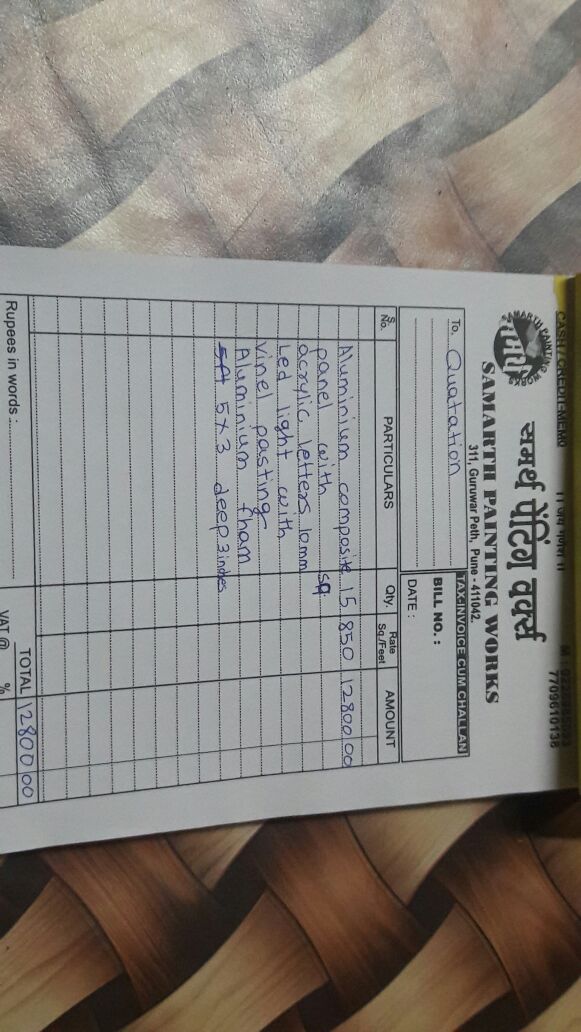 CASH / CREDIT MEMO
।। जय गणेश ।।
7709610136
SAMARTH PAINTING WORKS
समर्थ
समर्थ पेंटिंग वर्क्स
SAMARTH PAINTING WORKS
311, Guruwar Peth, Pune - 411042.
TAX-INVOICE CUM CHALLAN
To, Quatation
BILL NO. :
DATE :
S. No. PARTICULARS Qty. Rate Sq./Feet AMOUNT
Aluminium composite 15 850 12800 00
panel with sq.
acrylic letters 10mm
Led light with
Vinel pasting
Aluminium fham
5ft 5 x 3 deep 3 inches
TOTAL 12800 00
Rupees in words :
VAT @ %